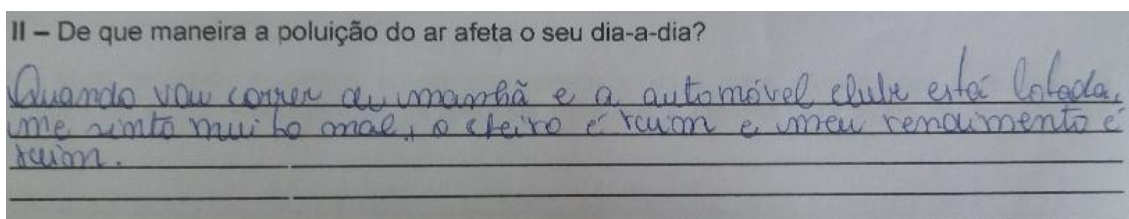 II – De que maneira a poluição do ar afeta o seu dia-a-dia?
Quando vou correr de manhã e a automóvel clube está lotada,
me sinto muito mal, o cheiro é ruim e meu rendimento é
ruim.